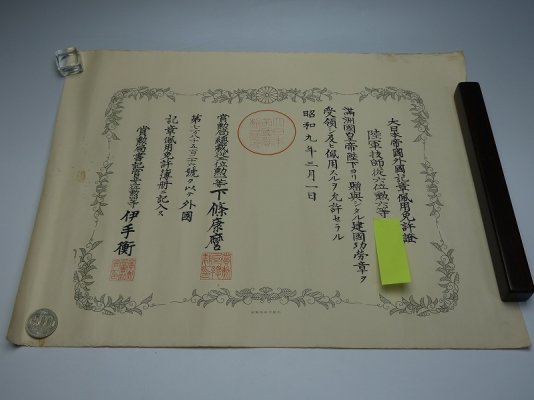 大日本帝國外國記章佩用免許證
陸軍技師從六位勲六等
滿洲國皇帝陛下ヨリ贈與シタル建國功勞章ヲ
受領シ及ヒ佩用スルヲ允許セラル
昭和九年三月一日
賞勲局總裁從位勲等下條康麿
第號ヲ以テ外國
記章佩用免許簿册ニ記入ス
賞勲局書記官正位勲等伊手衡